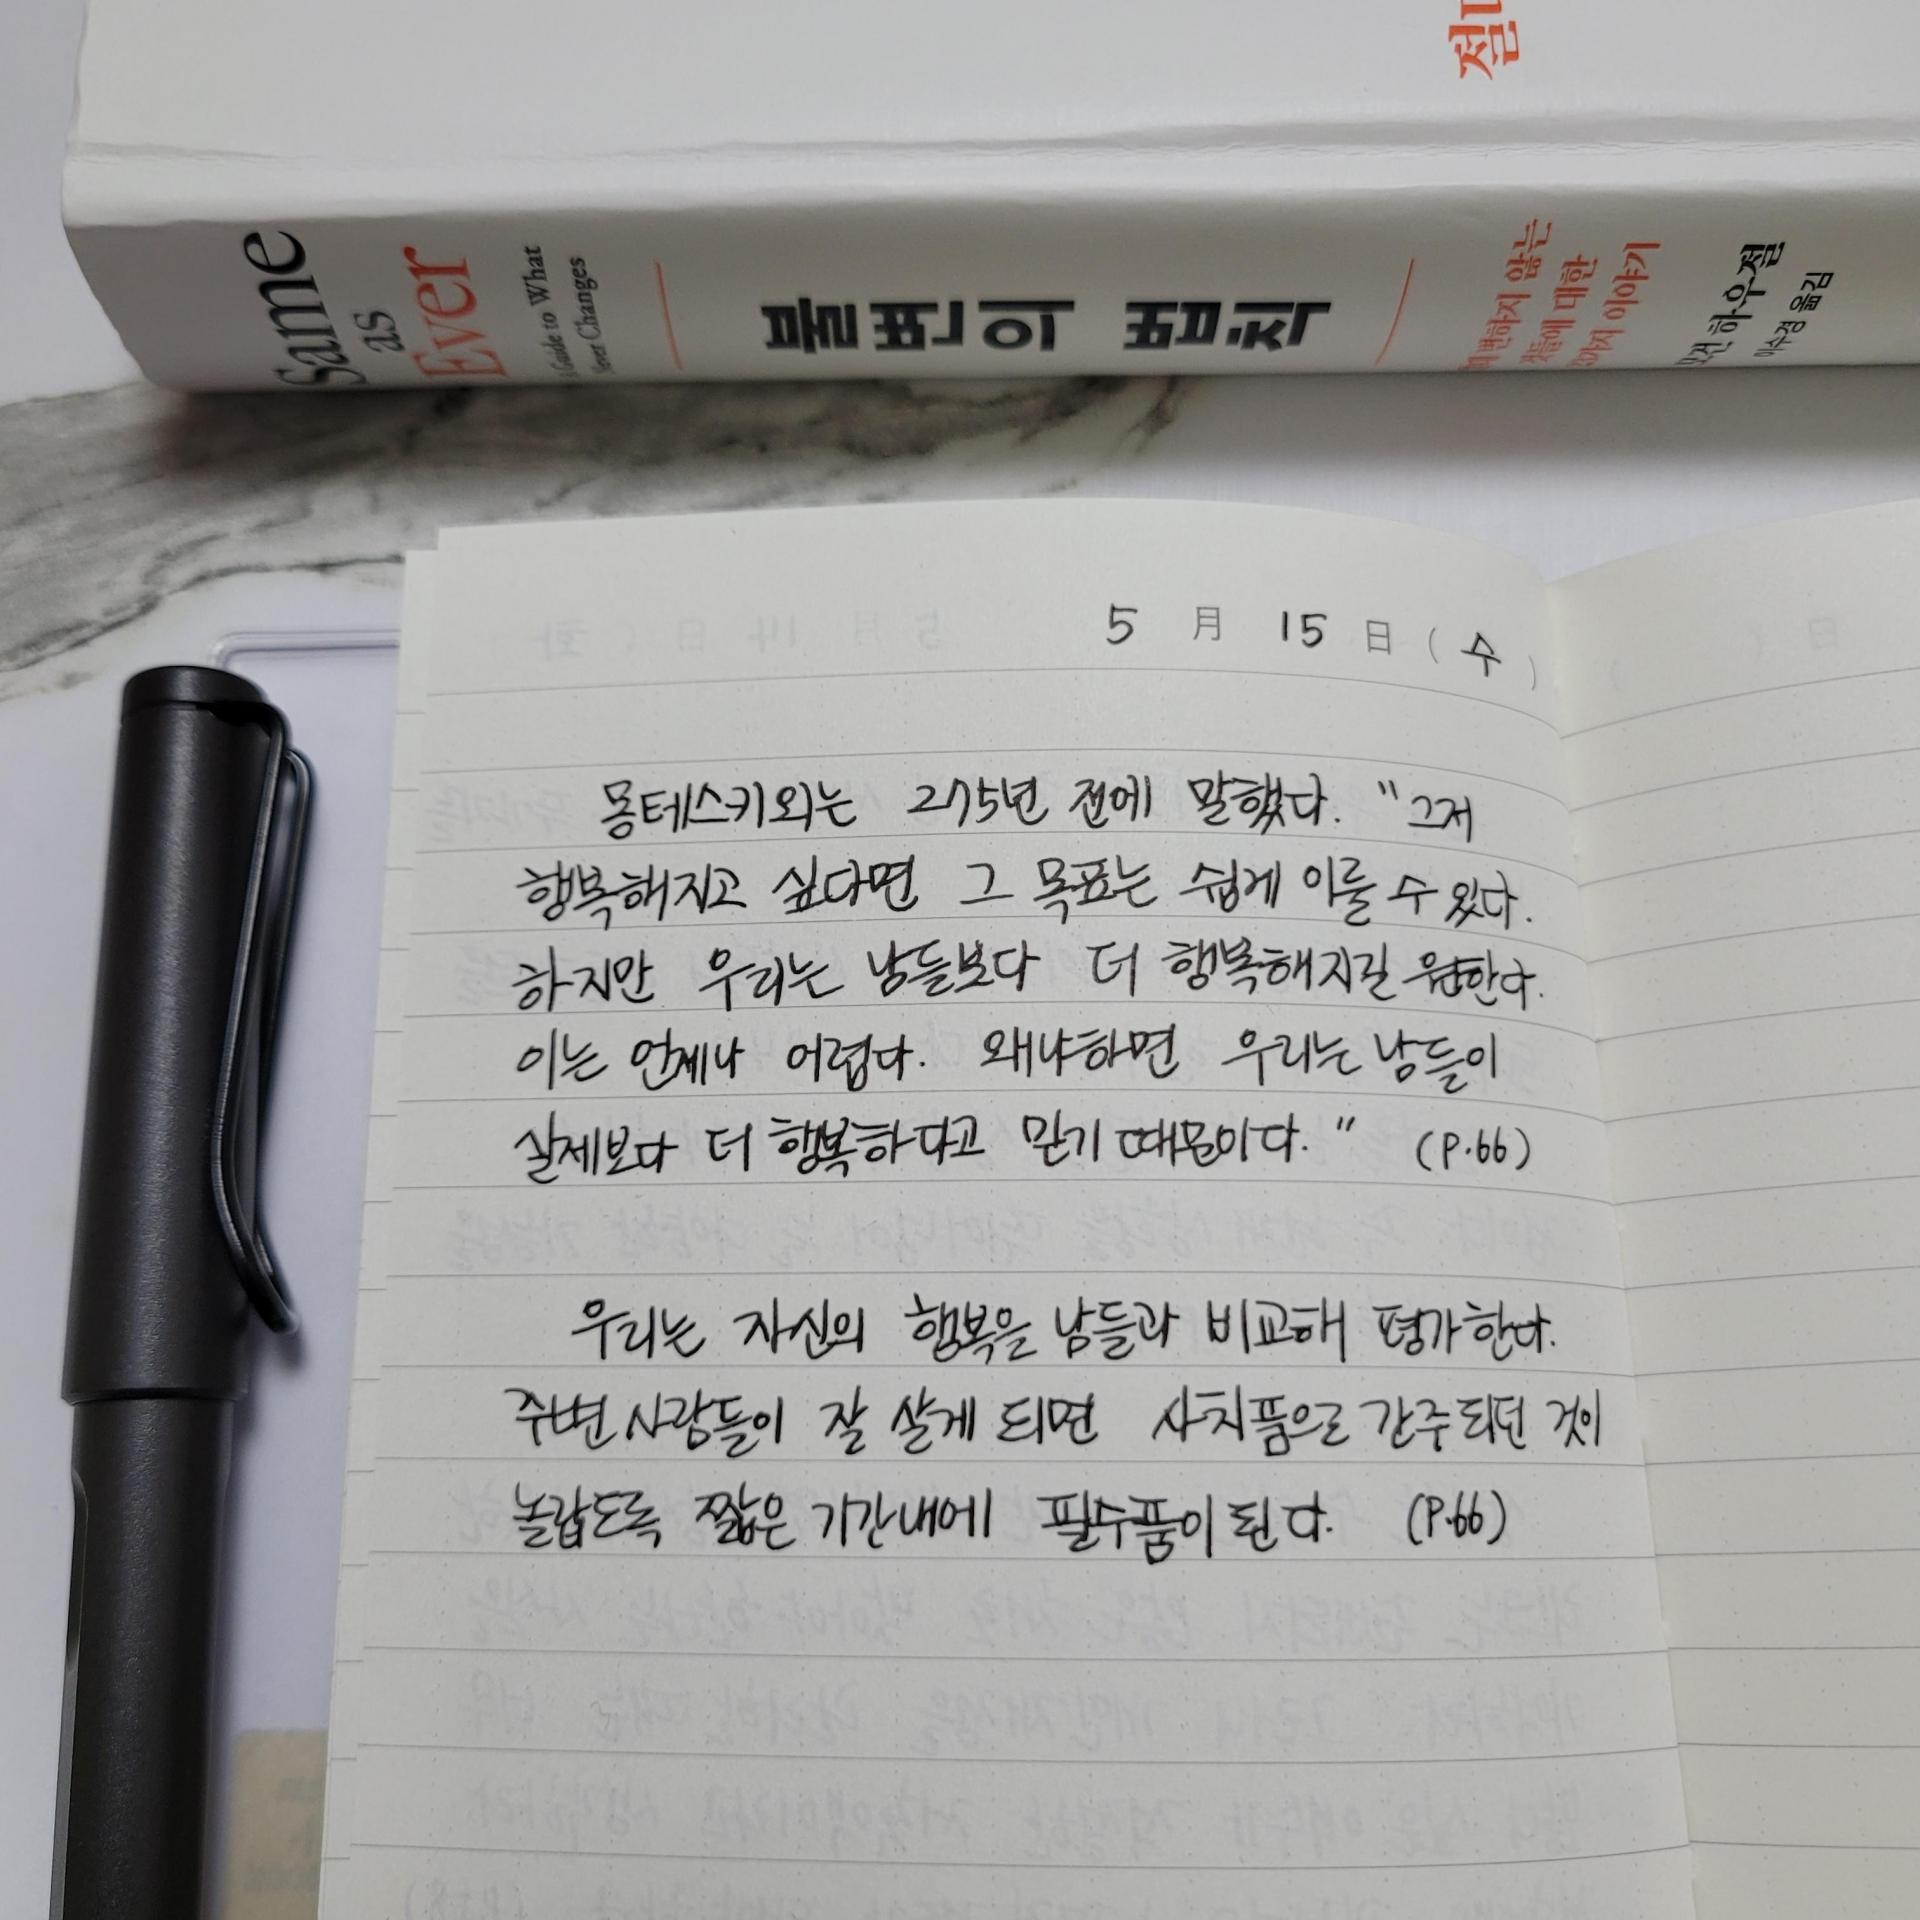 Same
as
Ever
A Guide to What
Never Changes
불변의 법칙
변하지 않는
것들에 대한
이야기
모건 하우절
이수경 옮김
5 月 15 日 (수)
몽테스키외는 275년 전에 말했다. "그저
행복해지고 싶다면 그 목표는 쉽게 이룰 수 있다.
하지만 우리는 남들보다 더 행복해지길 원한다.
이는 언제나 어렵다. 왜냐하면 우리는 남들이
실제보다 더 행복하다고 믿기 때문이다." (P.66)
우리는 자신의 행복을 남들과 비교해 평가한다.
주변 사람들이 잘 살게 되면 사치품으로 간주되던 것이
놀랍도록 짧은 기간내에 필수품이 된다. (P.66)